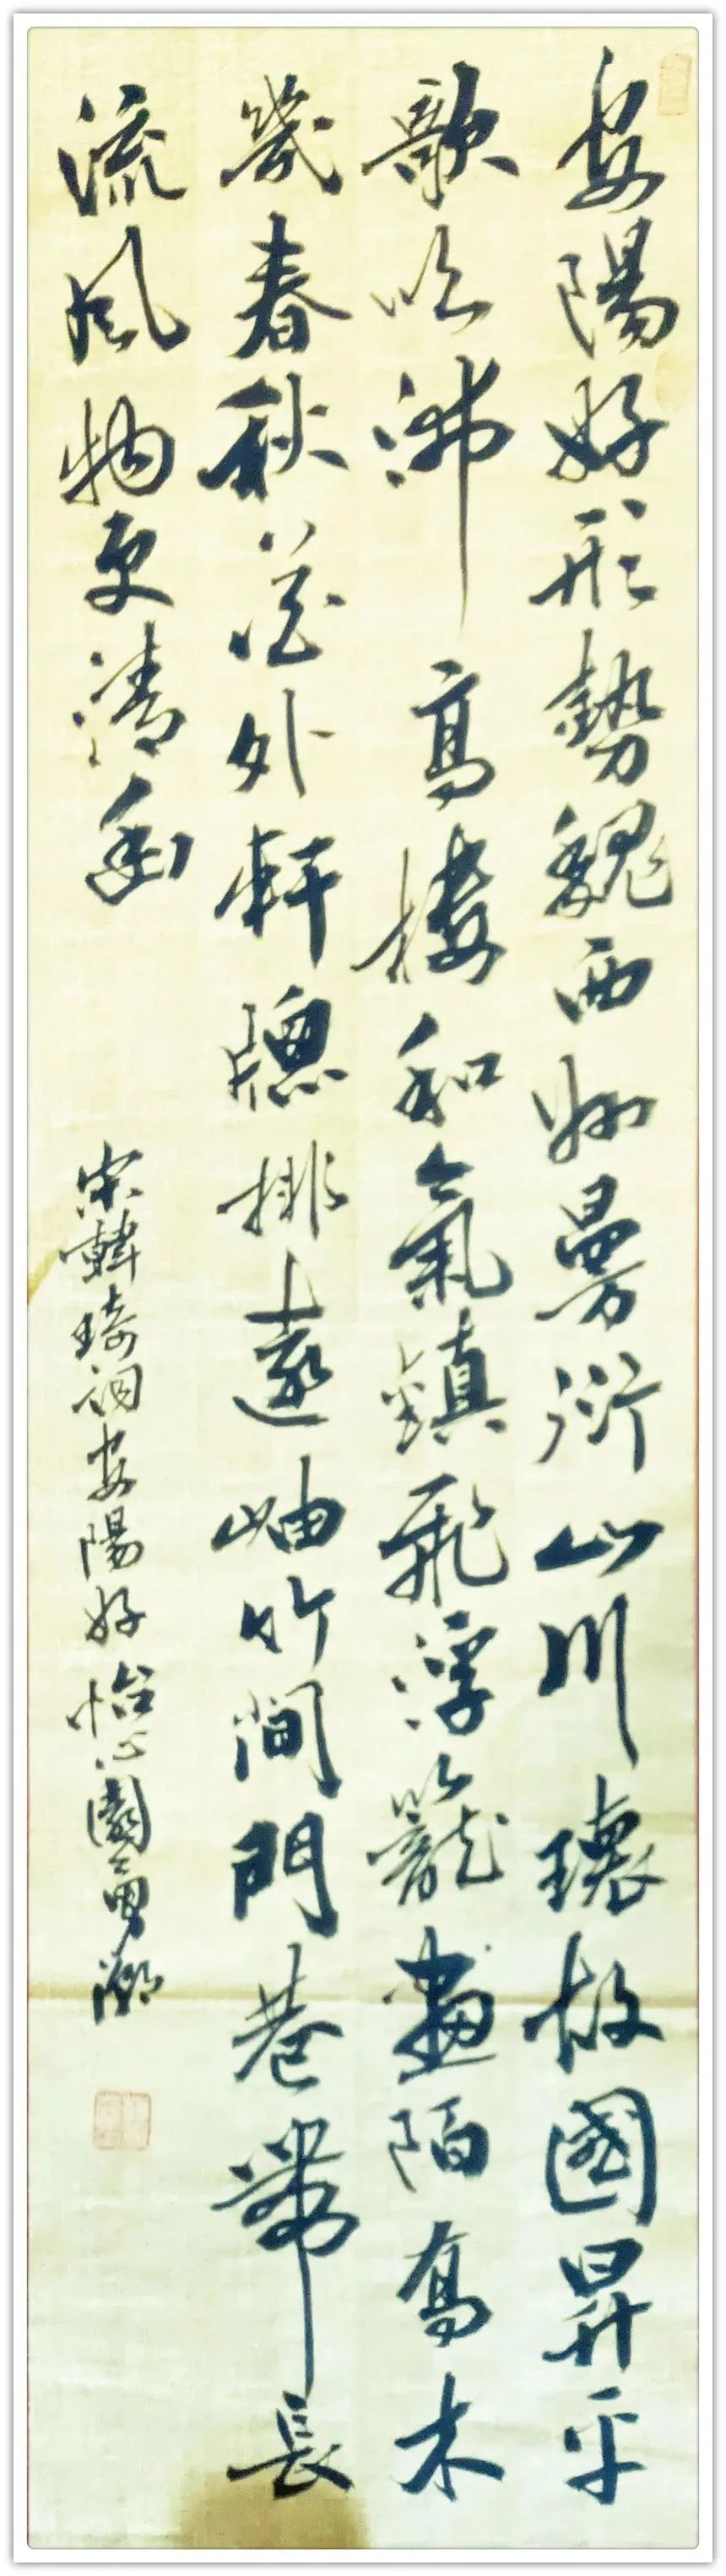 安陽好形勢魏西州曼衍山川環故國昇平
歌吹沸高樓和氣鎮飛浮籠畫陌喬木
幾春秋花外軒牕排遠岫竹間門巷帶長
流風物更清幽
宋韓琦詞安陽好怡心園